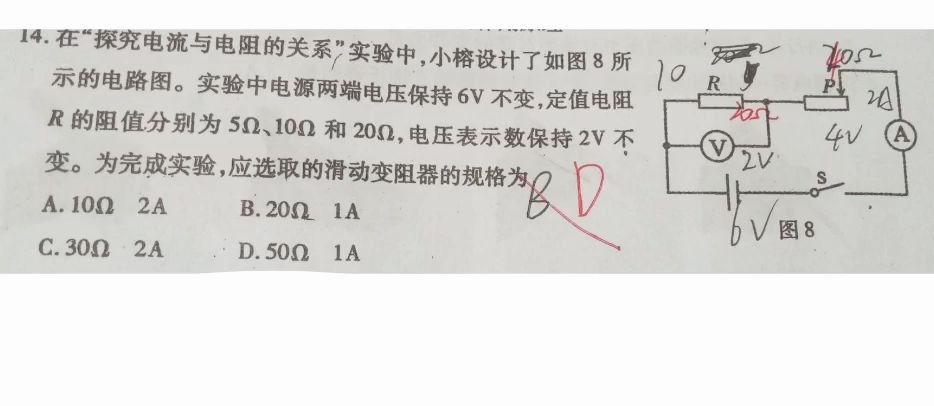 14. 在“探究电流与电阻的关系”实验中,小榕设计了如图8所
示的电路图。实验中电源两端电压保持6V不变,定值电阻
R的阻值分别为5Ω、10Ω和20Ω,电压表示数保持2V不
变。为完成实验,应选取的滑动变阻器的规格为
B D
A. 10Ω 2A B. 20Ω 1A
C. 30Ω 2A D. 50Ω 1A
10
R
20Ω
V
2V
40Ω
P
2A
4V
A
S
6V
图8